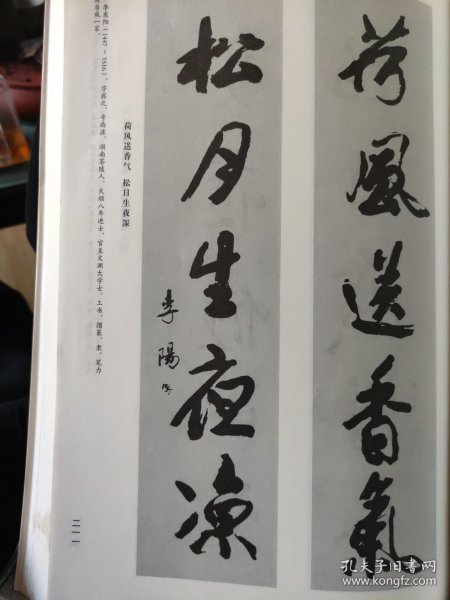 荷風送香氣
松月生夜凉
李陽
荷风送香气　松日生夜深
李东阳（1447～1516），字宾之，号西涯，湖南茶陵人，天顺八年进士，官至文渊大学士。工书，擅篆、隶，笔力
自成一家。
二一一
孔夫子旧书网
www.kongfz.com